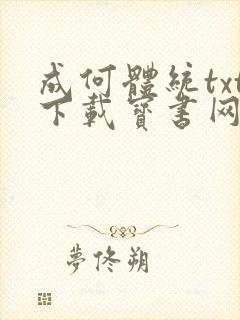 成何體統txt
下載寶書网
夢佟朔